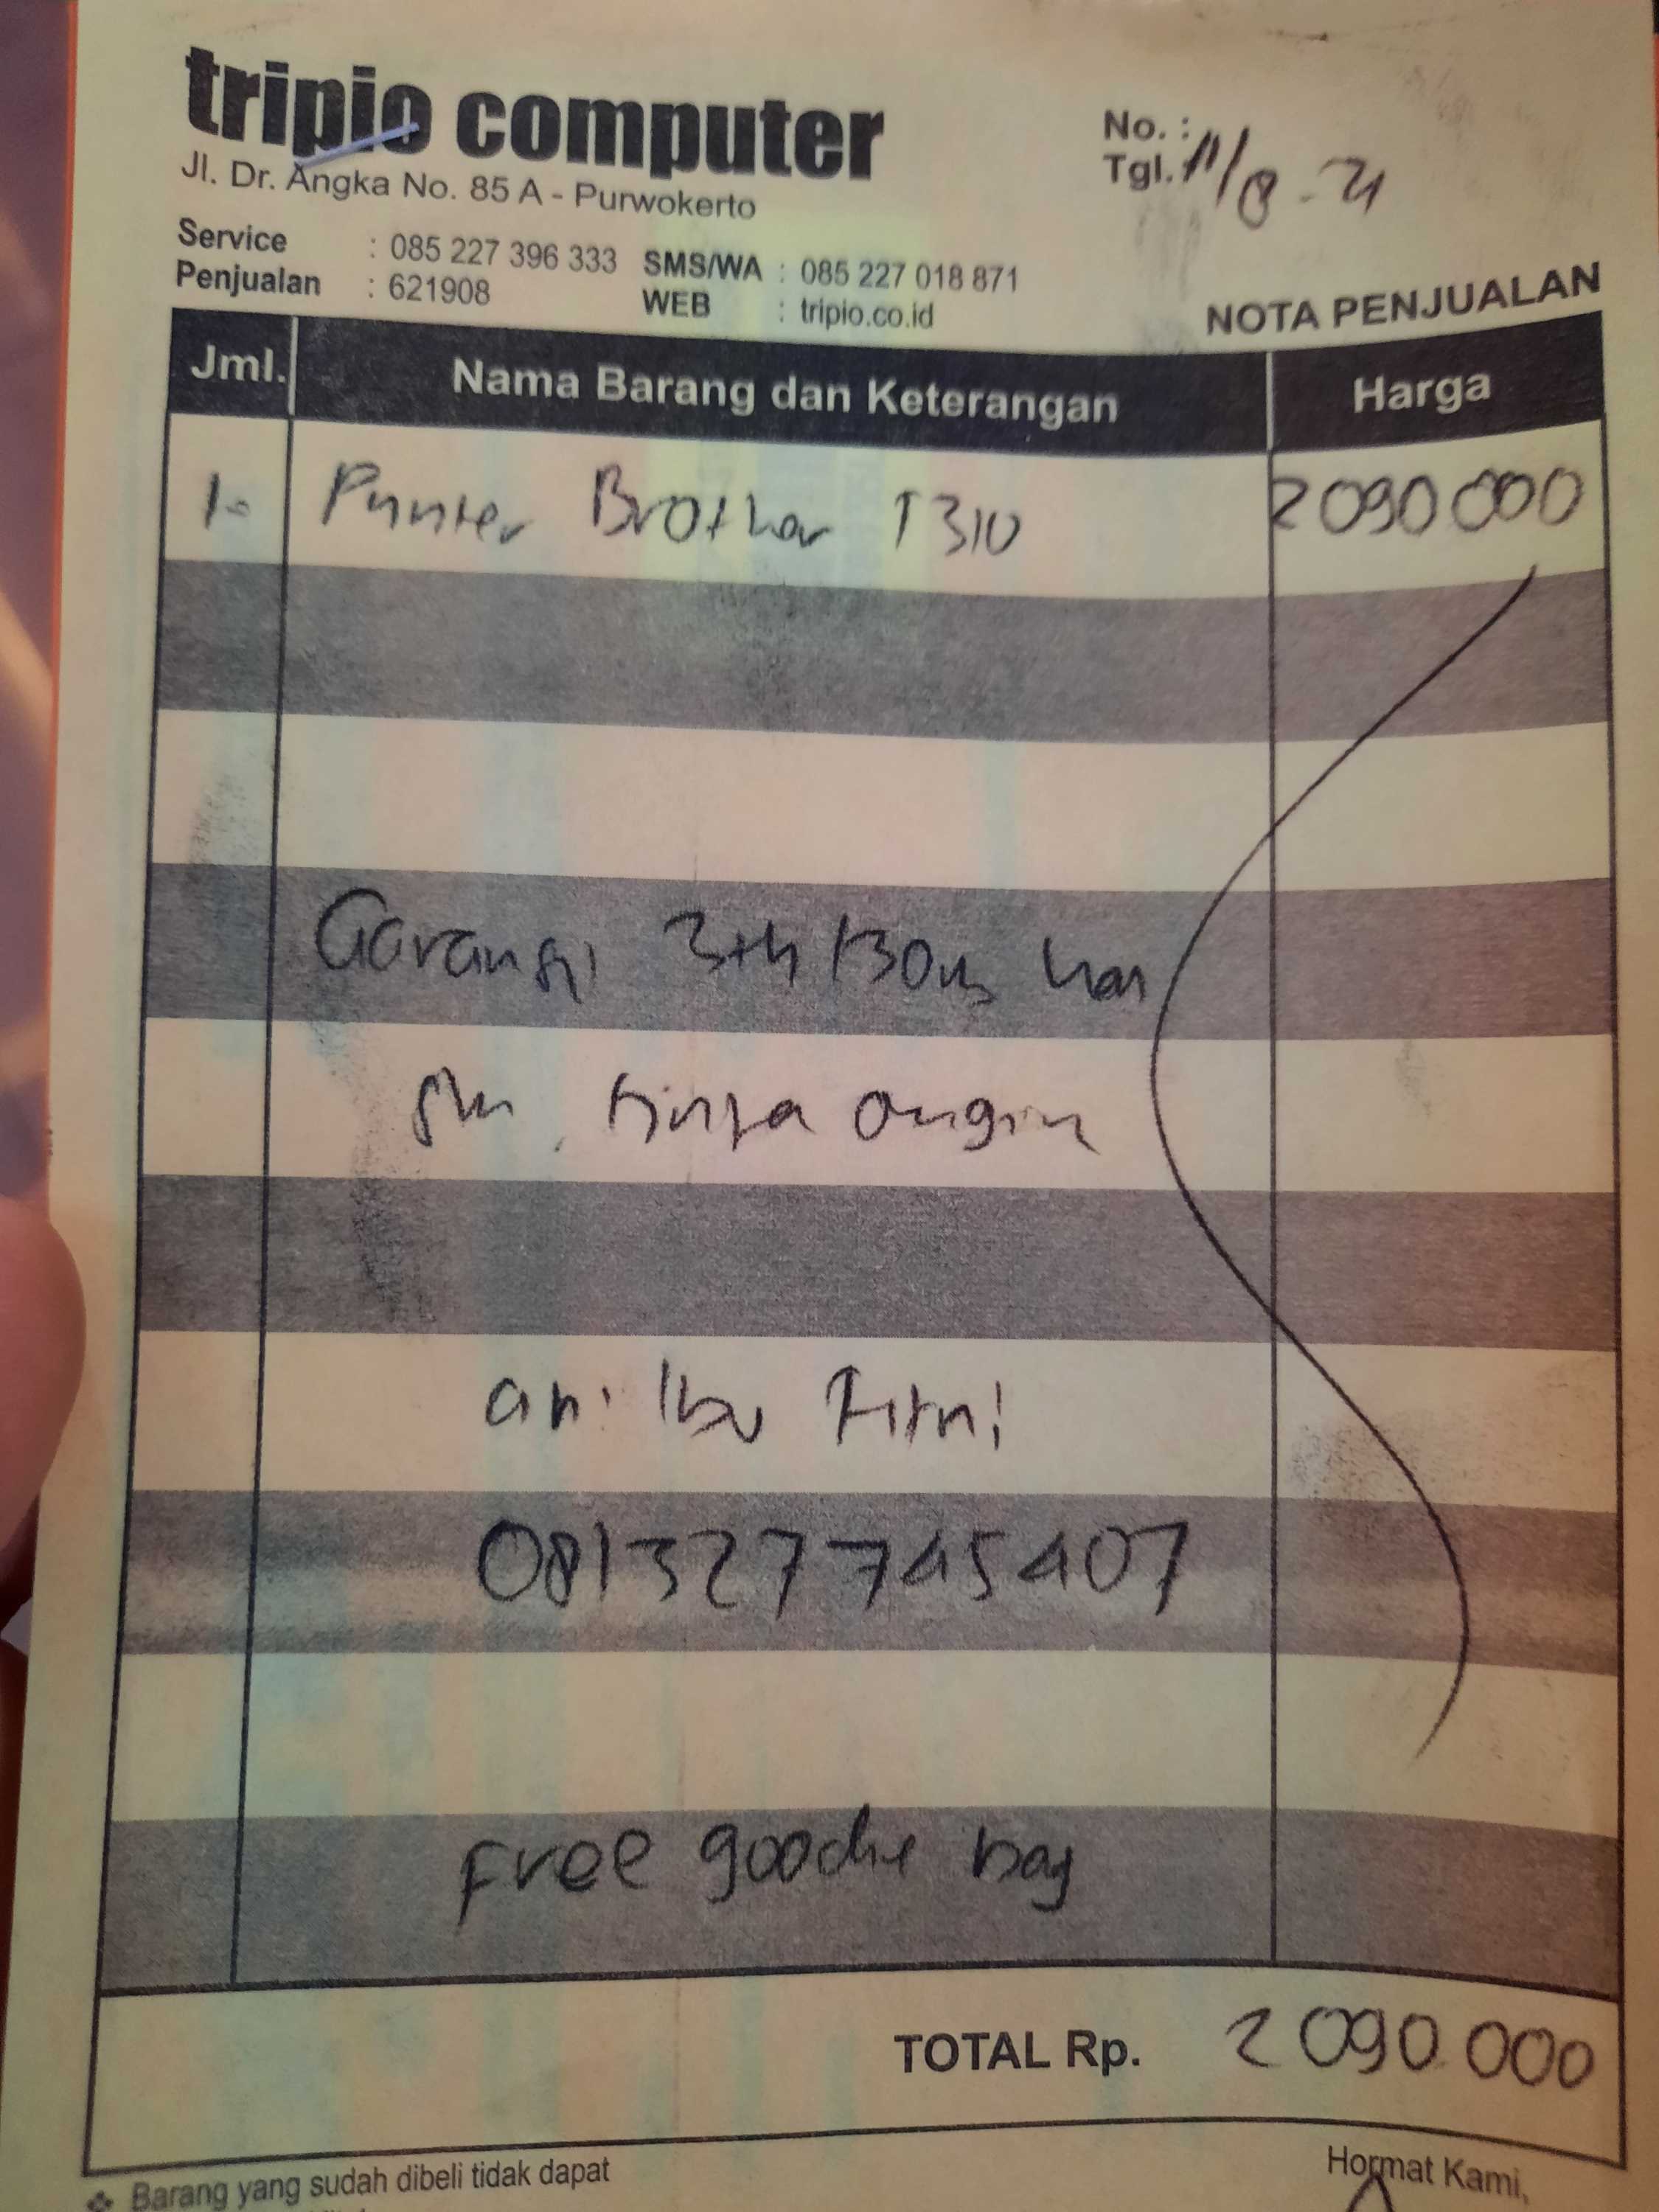 tripio computer
Jl. Dr. Angka No. 85 A - Purwokerto
No. :
Tgl. 11/8-21
Service : 085 227 396 333 SMS/WA : 085 227 018 871
Penjualan : 621908 WEB : tripio.co.id
NOTA PENJUALAN
Jml. Nama Barang dan Keterangan Harga
1. Printer Brother T310 2090000
Garansi 3th /30rb
tinta
an. Ibu Fitri
081327745407
Free goodie bag
TOTAL Rp. 2090.000
Barang yang sudah dibeli tidak dapat
Hormat Kami,